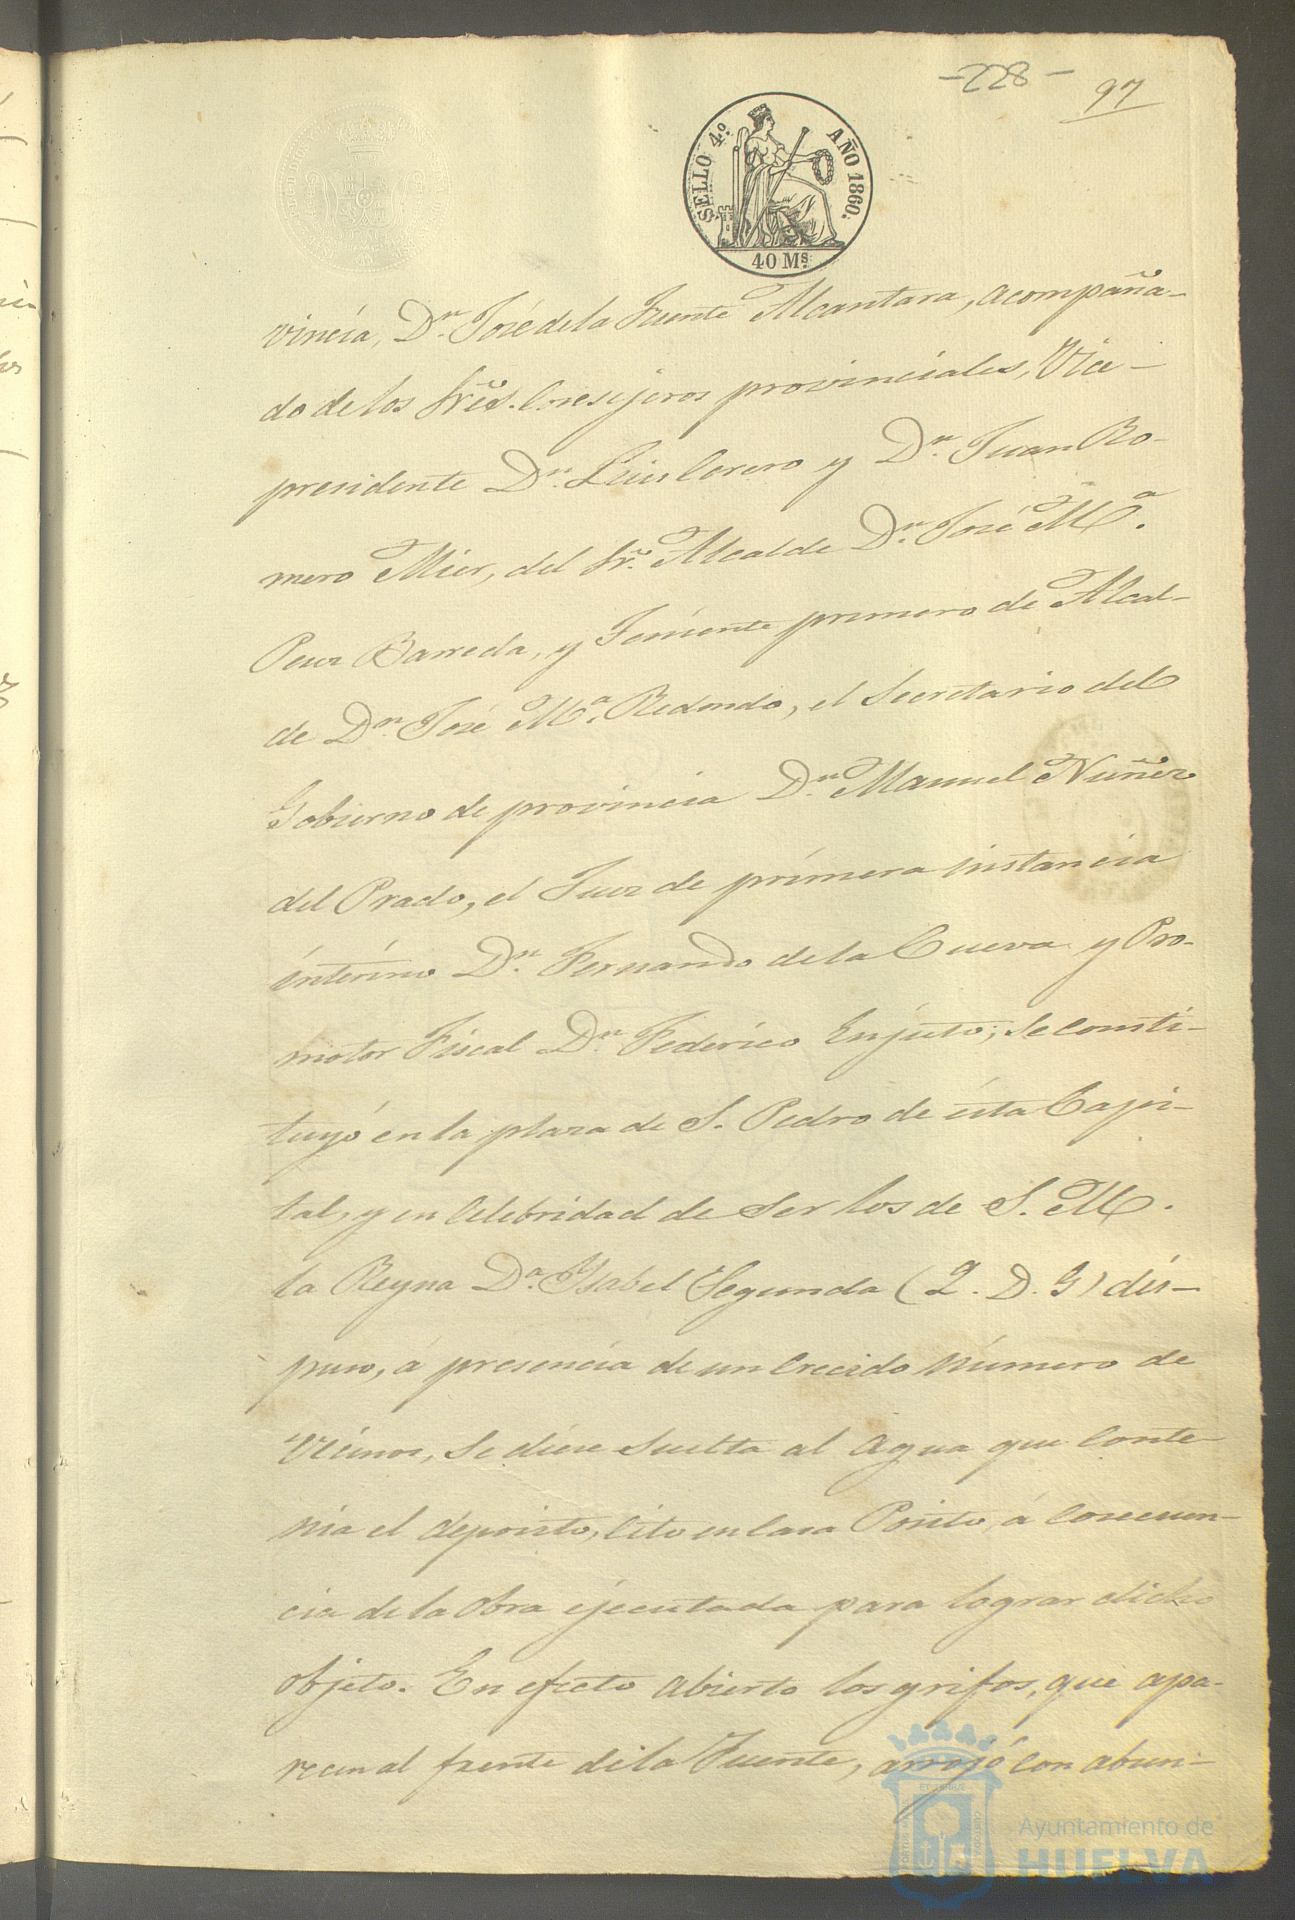 -228-
97
SELLO 4.º AÑO 1860.
40 Ms.
vincia, Dn. José de la Fuente Alcantara, acompaña-
do de los Sres. Consejeros provinciales, Vice-
presidente Dn. Luis Corero y Dn. Juan Ro-
mero Mier, del Sr. Alcalde Dn. José Ma.
Perez Barreda, y Teniente primero de Alcal-
de Dn. José Ma. Redondo, el Secretario del
Gobierno de provincia Dn. Manuel Nuñez
del Prado, el Juez de primera instancia
interino Dn. Fernando de la Cueva y Pro-
motor Fiscal Dn. Federico Enjuto; se consti-
tuyó en la plaza de S. Pedro de ésta Capi-
tal, y en celebridad de ser los de S. M.
la Reyna Da. Ysabel Segunda (Q. D. G) dis-
puso, á presencia de un crecido número de
vecinos, se diese suelta al agua que conte-
nia el deposito, cito en casa Posito, á consecuen-
cia de la obra ejecutada para lograr dicho
objeto. En efecto abierto los grifos, que apa-
recen al frente de la Fuente, arrojó con abun-
Ayuntamiento de
HUELVA